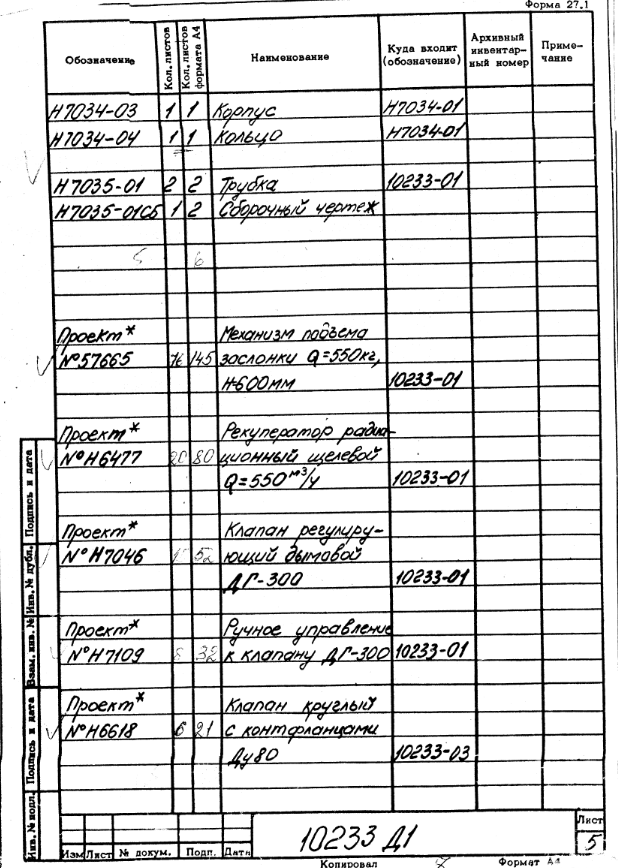 Форма 27.1
Обозначение Кол. листов Кол. листов формата А4 Наименование Куда входит (обозначение) Архивный инвентарный номер Примечание
Н7034-03 1 1 Корпус Н7034-01
Н7034-04 1 1 Кольцо Н7034-01
Н7035-01 2 2 Трубка 10233-01
Н7035-01СБ 1 2 Сборочный чертеж
5 6
Проект* Механизм подъема
№57665 145 заслонки Q=550кг,
Н-600мм 10233-01
Проект* Рекуператор радиа-
№Н6477 20 80 ционный щелевой
Q=550 м³/ч 10233-01
Проект* Клапан регулиру-
№Н7046 52 ющий дымовой
ДГ-300 10233-01
Проект* Ручное управление
№Н7109 8 32 к клапану ДГ-300 10233-01
Проект* Клапан круглый
№Н6618 6 21 с контфланцами
Ду80 10233-03
Инв. № подл. Подпись и дата Взам. инв. № Инв. № дубл. Подпись и дата
Изм Лист № докум. Подп. Дата
10233 Д1
Лист
5
Копировал Формат А4